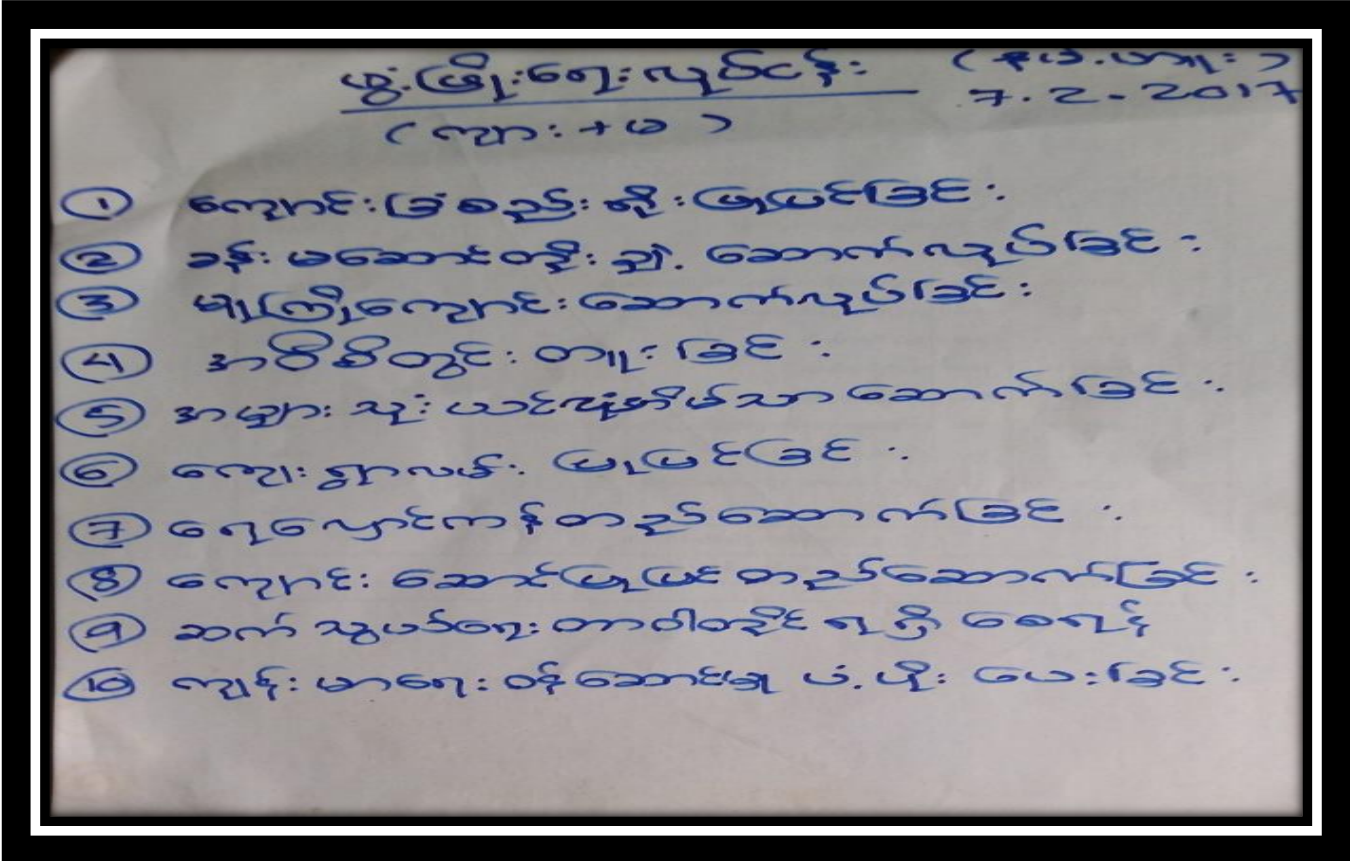 ဖွံ့ဖြိုးရေးလုပ်ငန်း
7.2.2017
(ကျား + မ)
① ကျောင်းခြံစည်းရိုးပြုပြင်ခြင်း
② ခန်းမဆောင်တိုးချဲ့ဆောက်လုပ်ခြင်း
③ မူကြိုကျောင်းဆောက်လုပ်ခြင်း
④ အဝီစိတွင်းတူးခြင်း
⑤ အများသုံးယင်လုံအိမ်သာဆောက်ခြင်း
⑥ ကျေးရွာလမ်းပြုပြင်ခြင်း
⑦ ရေလှောင်ကန်တည်ဆောက်ခြင်း
⑧ ကျောင်းဆောင်ပြုပြင်တည်ဆောက်ခြင်း
⑨ ဆက်သွယ်ရေးတာဝါတိုင်ရရှိစေရန်
⑩ ကျန်းမာရေးဝန်ဆောင်မှုပံ့ပိုးပေးခြင်း